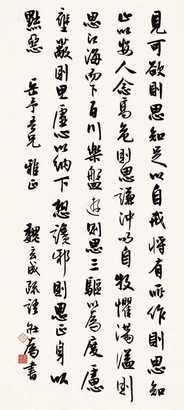 見可欲則思知足以自戒將有所作則思知
止以安人念高危則思謙沖而自牧懼滿溢則
思江海而下百川樂盤遊則思三驅以為度慮
壅蔽則思虛心以納下想讒邪則思正身以
黜惡 岳亭吾兄 雅正 魏玄成疏語 壯為書